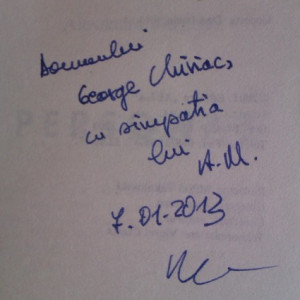 Domnului
George Chiriac,
cu simpatia
lui A.M.
7.01.2013